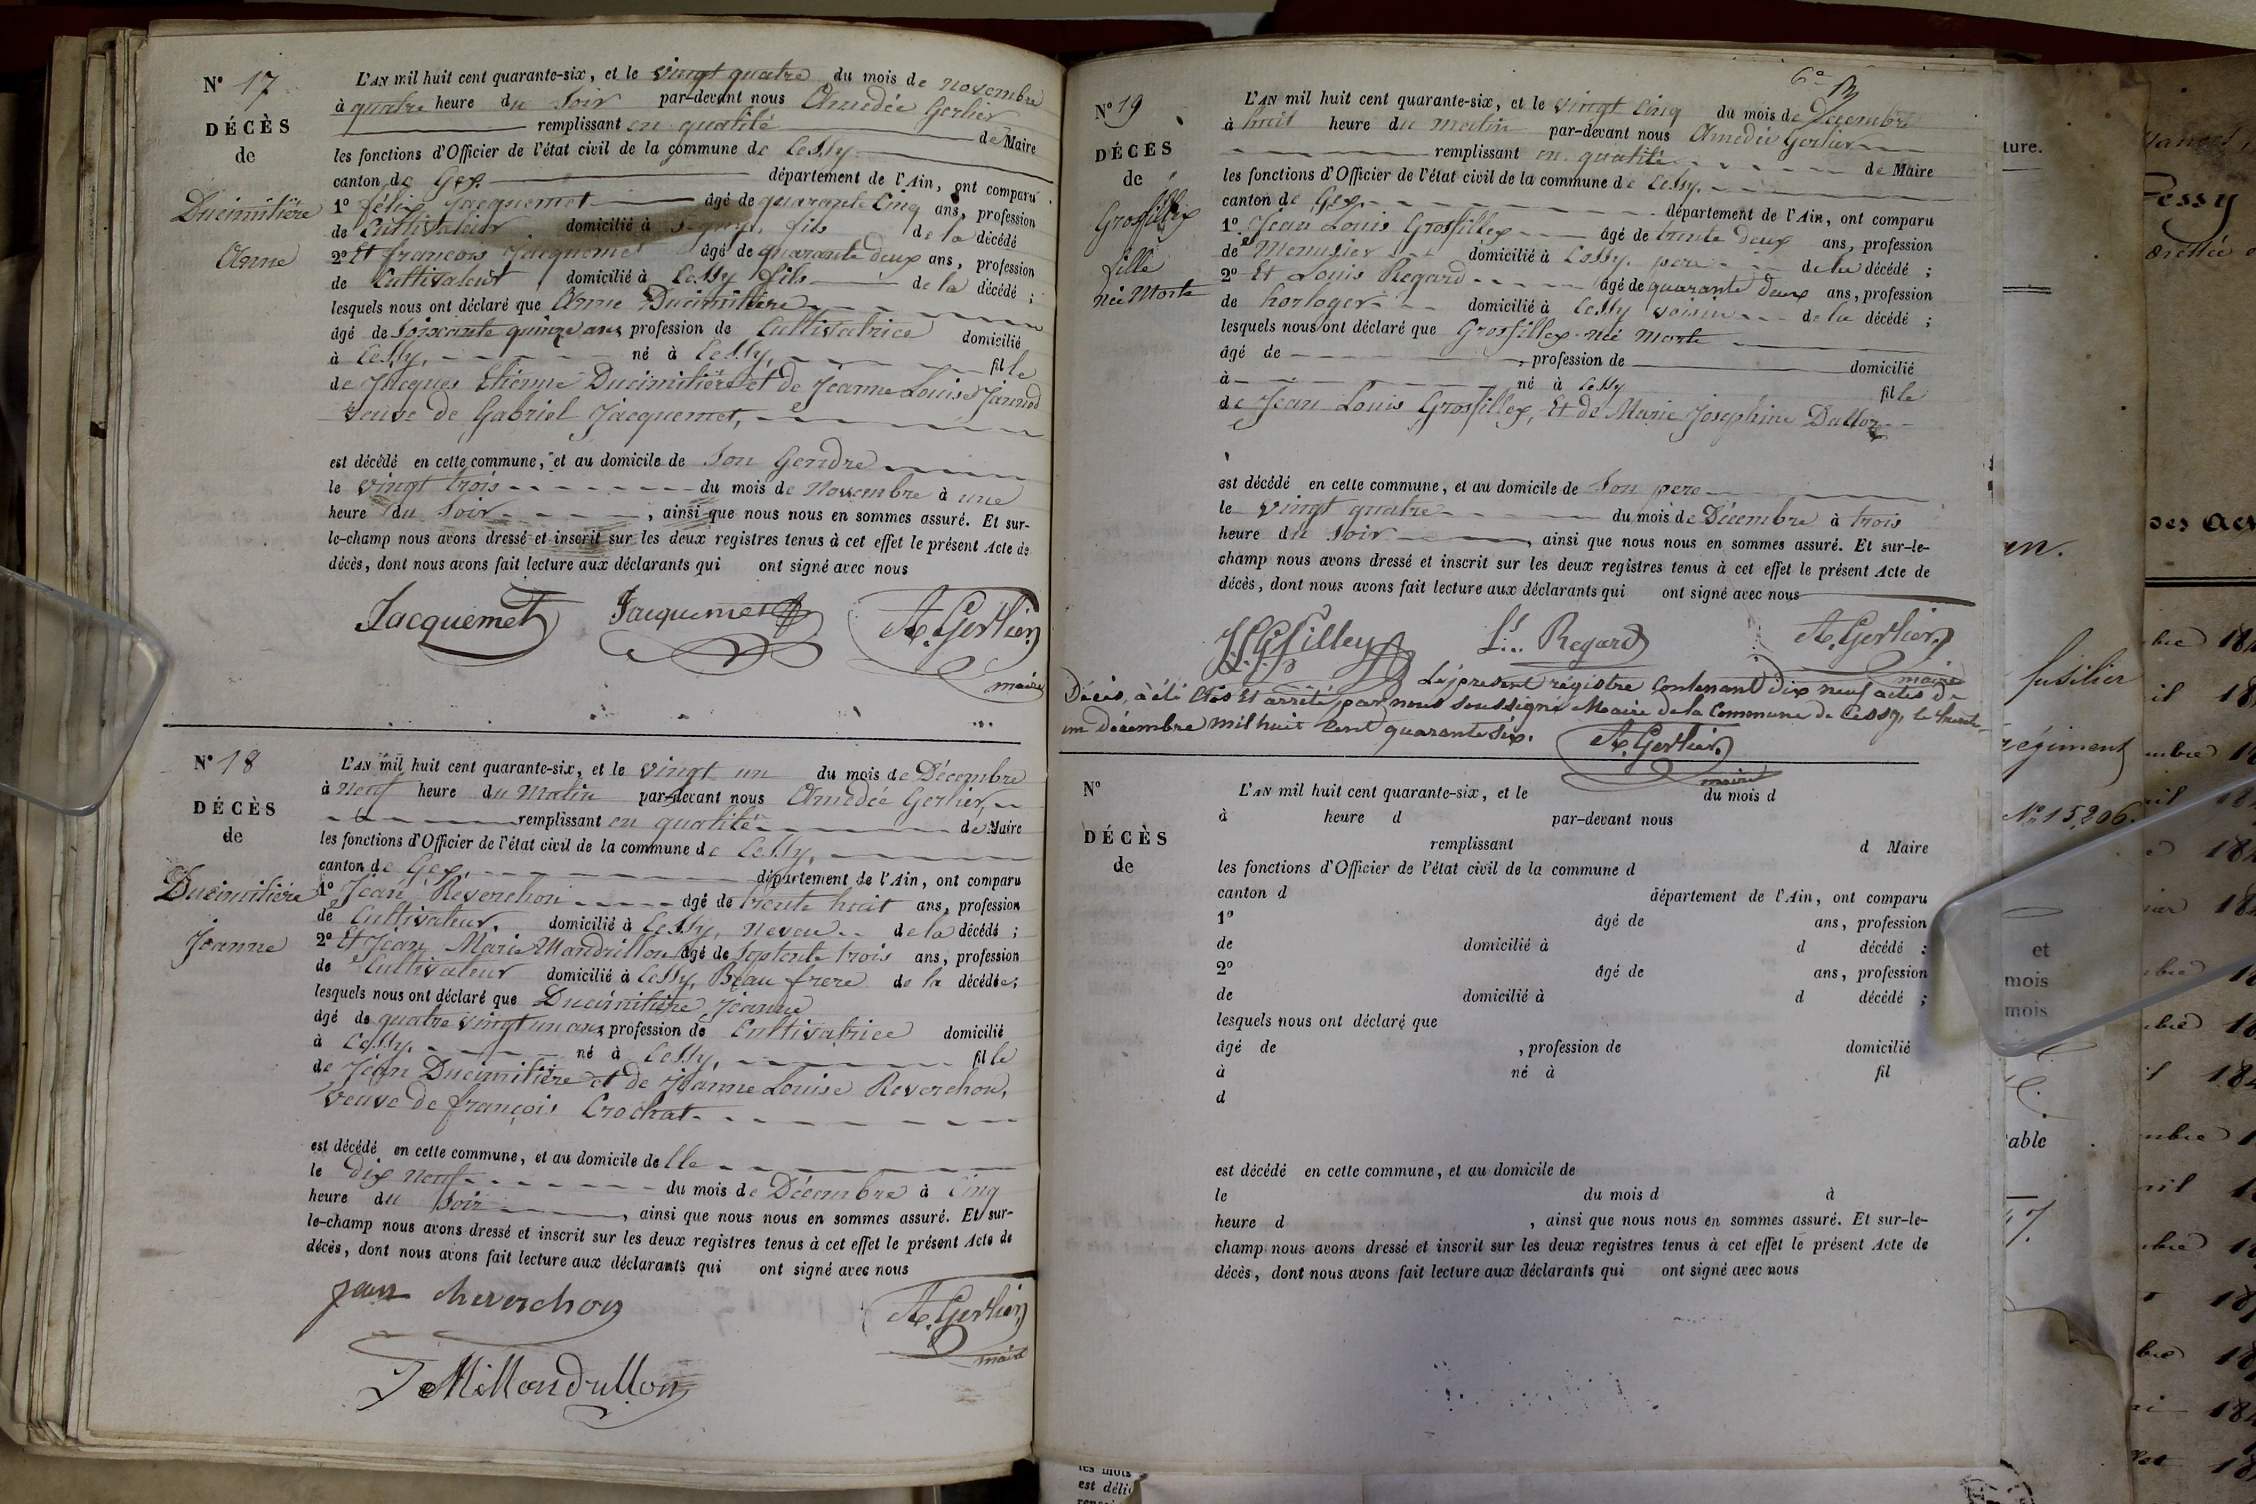 N° 17
DÉCÈS
de
Ducimitière
Anne
L'AN mil huit cent quarante-six, et le vingt quatre du mois de novembre
à quatre heure du soir par-devant nous Amedée Gerlier
remplissant en qualité de Maire
les fonctions d'Officier de l'état civil de la commune de Cessy
canton de Gex département de l'Ain, ont comparu
1° félix Jacquemet âgé de quarante Cinq ans, profession
de Cultivateur domicilié à Segny, fils de la décédé
2° Et francois Jacquemet âgé de quarante deux ans, profession
de Cultivateur domicilié à Cessy fils de la décédé ;
lesquels nous ont déclaré que Anne Ducimitière
âgé de Soixante quinze ans, profession de Cultivatrice domicilié
à Cessy, né à Cessy, fille
de Jacques Etienne Ducimitière et de Jeanne Louise Jannod
veuve de Gabriel Jacquemet,
est décédé en cette commune, et au domicile de Son Gendre
le vingt trois du mois de Novembre à une
heure du Soir, ainsi que nous nous en sommes assuré. Et sur-
le-champ nous avons dressé et inscrit sur les deux registres tenus à cet effet le présent Acte de
décès, dont nous avons fait lecture aux déclarants qui ont signé avec nous
Jacquemet Jacquemet A. Gerlier
maire
N° 18
DÉCÈS
de
Ducimitière
Jeanne
L'AN mil huit cent quarante-six, et le vingt un du mois de Décembre
à neuf heure du Matin par-devant nous Amedée Gerlier,
remplissant en qualité de Maire
les fonctions d'Officier de l'état civil de la commune de Cessy,
canton de Gex, département de l'Ain, ont comparu
1° Jean Reverchon âgé de trente huit ans, profession
de Cultivateur, domicilié à Cessy, neveu de la décédé ;
2° Et Jean Marie Mandrillon âgé de Septente trois ans, profession
de Cultivateur domicilié à Cessy, Beau frere de la décédée ;
lesquels nous ont déclaré que Ducimitière Jeanne
âgé de quatre vingt un ans, profession de Cultivatrice domicilié
à Cessy, né à Cessy, fille
de Jean Ducimitière et de Jeanne Louise Reverchon,
veuve de françois Crochat
est décédé en cette commune, et au domicile de Elle
le dix neuf du mois de Décembre à Cinq
heure du Soir, ainsi que nous nous en sommes assuré. Et sur-
le-champ nous avons dressé et inscrit sur les deux registres tenus à cet effet le présent Acte de
décès, dont nous avons fait lecture aux déclarants qui ont signé avec nous
jean Reverchon A. Gerlier
maire
J M Mandrillon
N° 19
DÉCÈS
de
Grosfillex
fille
née Morte
L'AN mil huit cent quarante-six, et le vingt Cinq du mois de Décembre
à huit heure du matin par-devant nous Amedée Gerlier
remplissant en qualité de Maire
les fonctions d'Officier de l'état civil de la commune de Cessy,
canton de Gex, département de l'Ain, ont comparu
1° Jean Louis Grosfillex âgé de trente deux ans, profession
de Menusier domicilié à Cessy, pere de la décédé ;
2° Et Louis Regard âgé de quarante deux ans, profession
de horloger domicilié à Cessy voisin de la décédé ;
lesquels nous ont déclaré que Grosfillex née Morte
âgé de , profession de domicilié
à né à Cessy fille
de Jean Louis Grosfillex, Et de Marie Josephine Dalloz
est décédé en cette commune, et au domicile de Son pere
le vingt quatre du mois de Décembre à trois
heure du Soir, ainsi que nous nous en sommes assuré. Et sur-le-
champ nous avons dressé et inscrit sur les deux registres tenus à cet effet le présent Acte de
décès, dont nous avons fait lecture aux déclarants qui ont signé avec nous
L. Regard A. Gerlier
maire
Le présent régistre Contenant dix neuf actes de
Décès, a été Clos Et arrêté, par nous soussigné Maire de la Commune de Cessy, le trente
un décembre mil huit Cent quarante Six.
A. Gerlier
maire
N°
DÉCÈS
de
L'AN mil huit cent quarante-six, et le du mois d
à heure d par-devant nous
remplissant d Maire
les fonctions d'Officier de l'état civil de la commune d
canton d département de l'Ain, ont comparu
1° âgé de ans, profession
de domicilié à d décédé ;
2° âgé de ans, profession
de domicilié à d décédé ;
lesquels nous ont déclaré que
âgé de , profession de domicilié
à né à fil
d
est décédé en cette commune, et au domicile de
le du mois d à
heure d , ainsi que nous nous en sommes assuré. Et sur-le-
champ nous avons dressé et inscrit sur les deux registres tenus à cet effet le présent Acte de
décès, dont nous avons fait lecture aux déclarants qui ont signé avec nous
ture.
fusilier
régiment
N° 15,206.
et
mois
mois
able